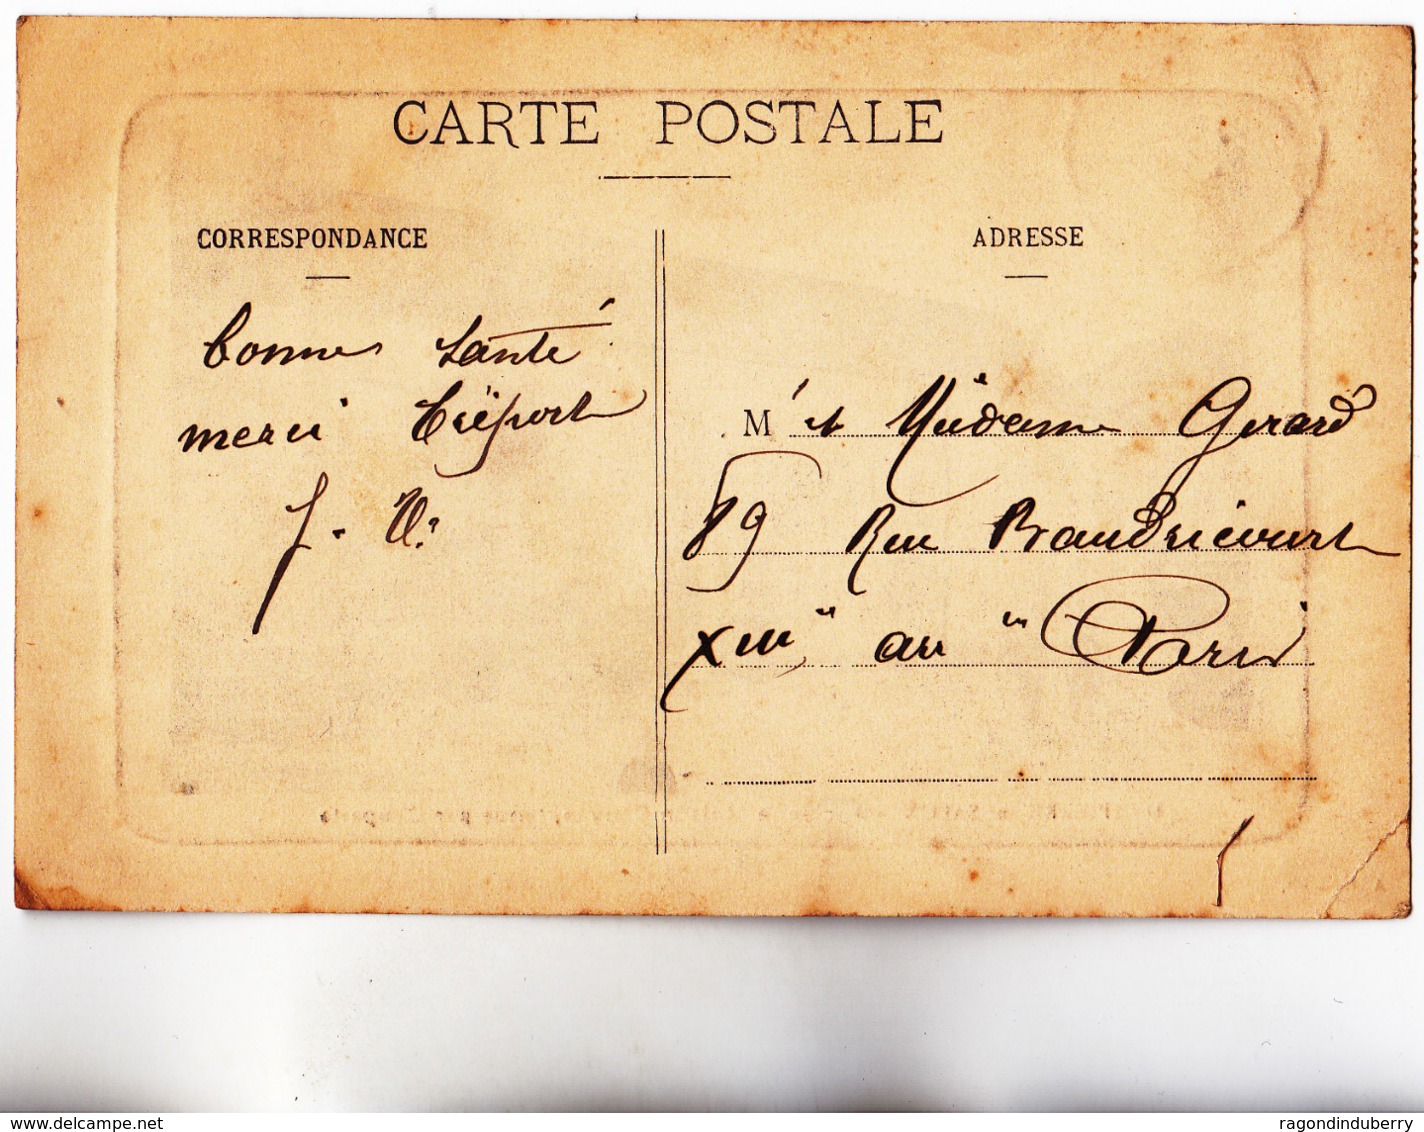 CARTE POSTALE
CORRESPONDANCE
bonne santé
merci Tréport
J. V.
ADRESSE
M r et Madame Gérard
89 Rue Baudricourt
XIII arr Paris
www.delcampe.net
ragondinduberry